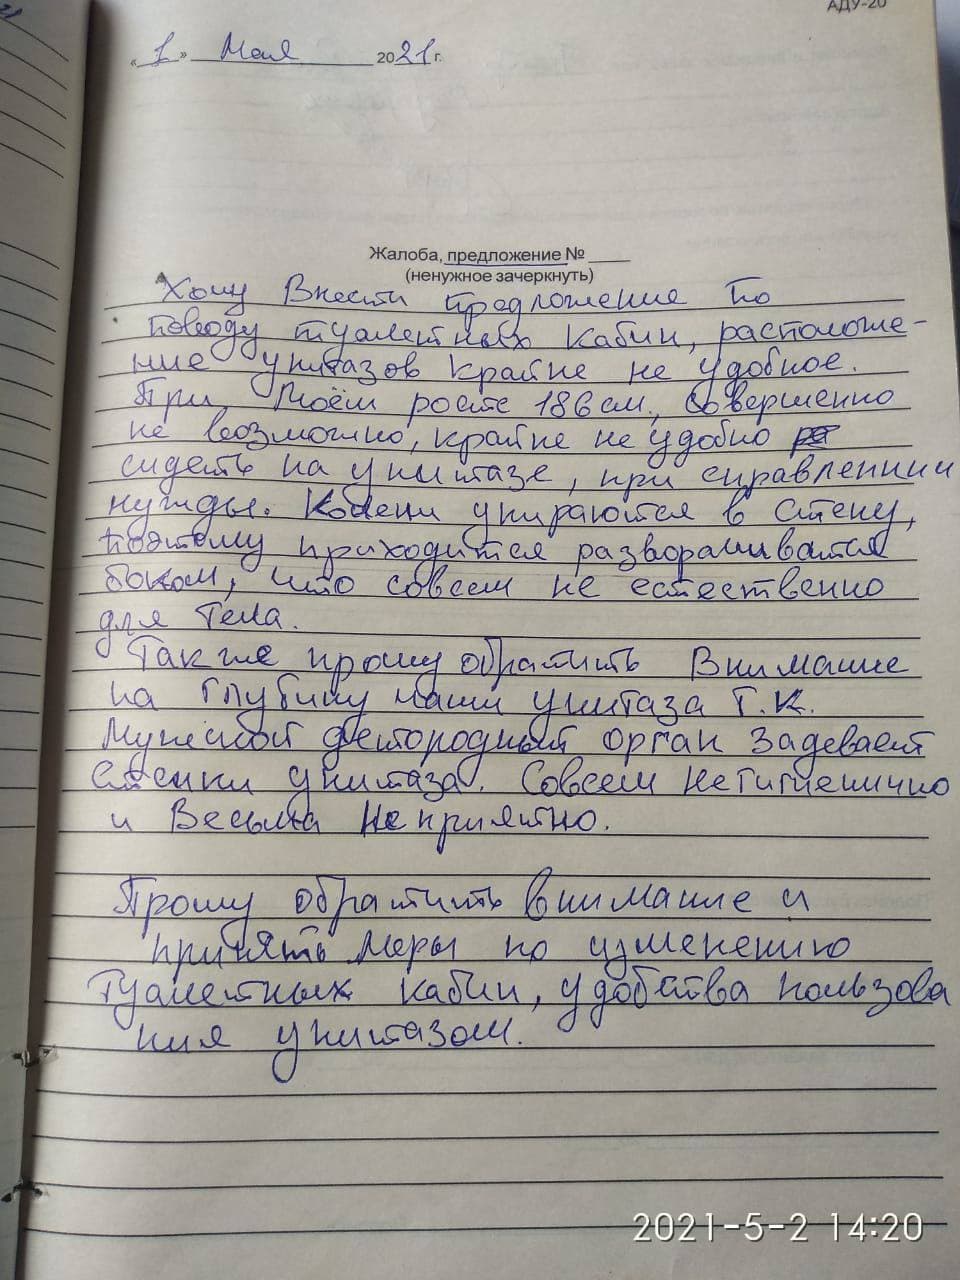 АДУ-20
« 1 » Мая 2021 г.
Жалоба, предложение № ____
(ненужное зачеркнуть)
Хочу Внести предложение по
поводу туалетных кабин, располоше-
ние унитазов крайне не удобное.
При моём росте 186 см., Совершенно
не возможно, крайне не удобно
сидеть на унитазе, при справлении
нужды. Колени упираются в стену,
поэтому приходится разворашиватся
боком, что совсем не естественно
для тела.
Так же прошу обратить Внимание
на глубину чаши унитаза т.к.
Мужской детородный орган задевает
Стенки унитаза. Совсем негигиенично
и Весьма не приятно.
Прошу обратить внимание и
принять меры по изменению
Туалетных кабин, удобства пользова
ния унитазом.
2021-5-2 14:20